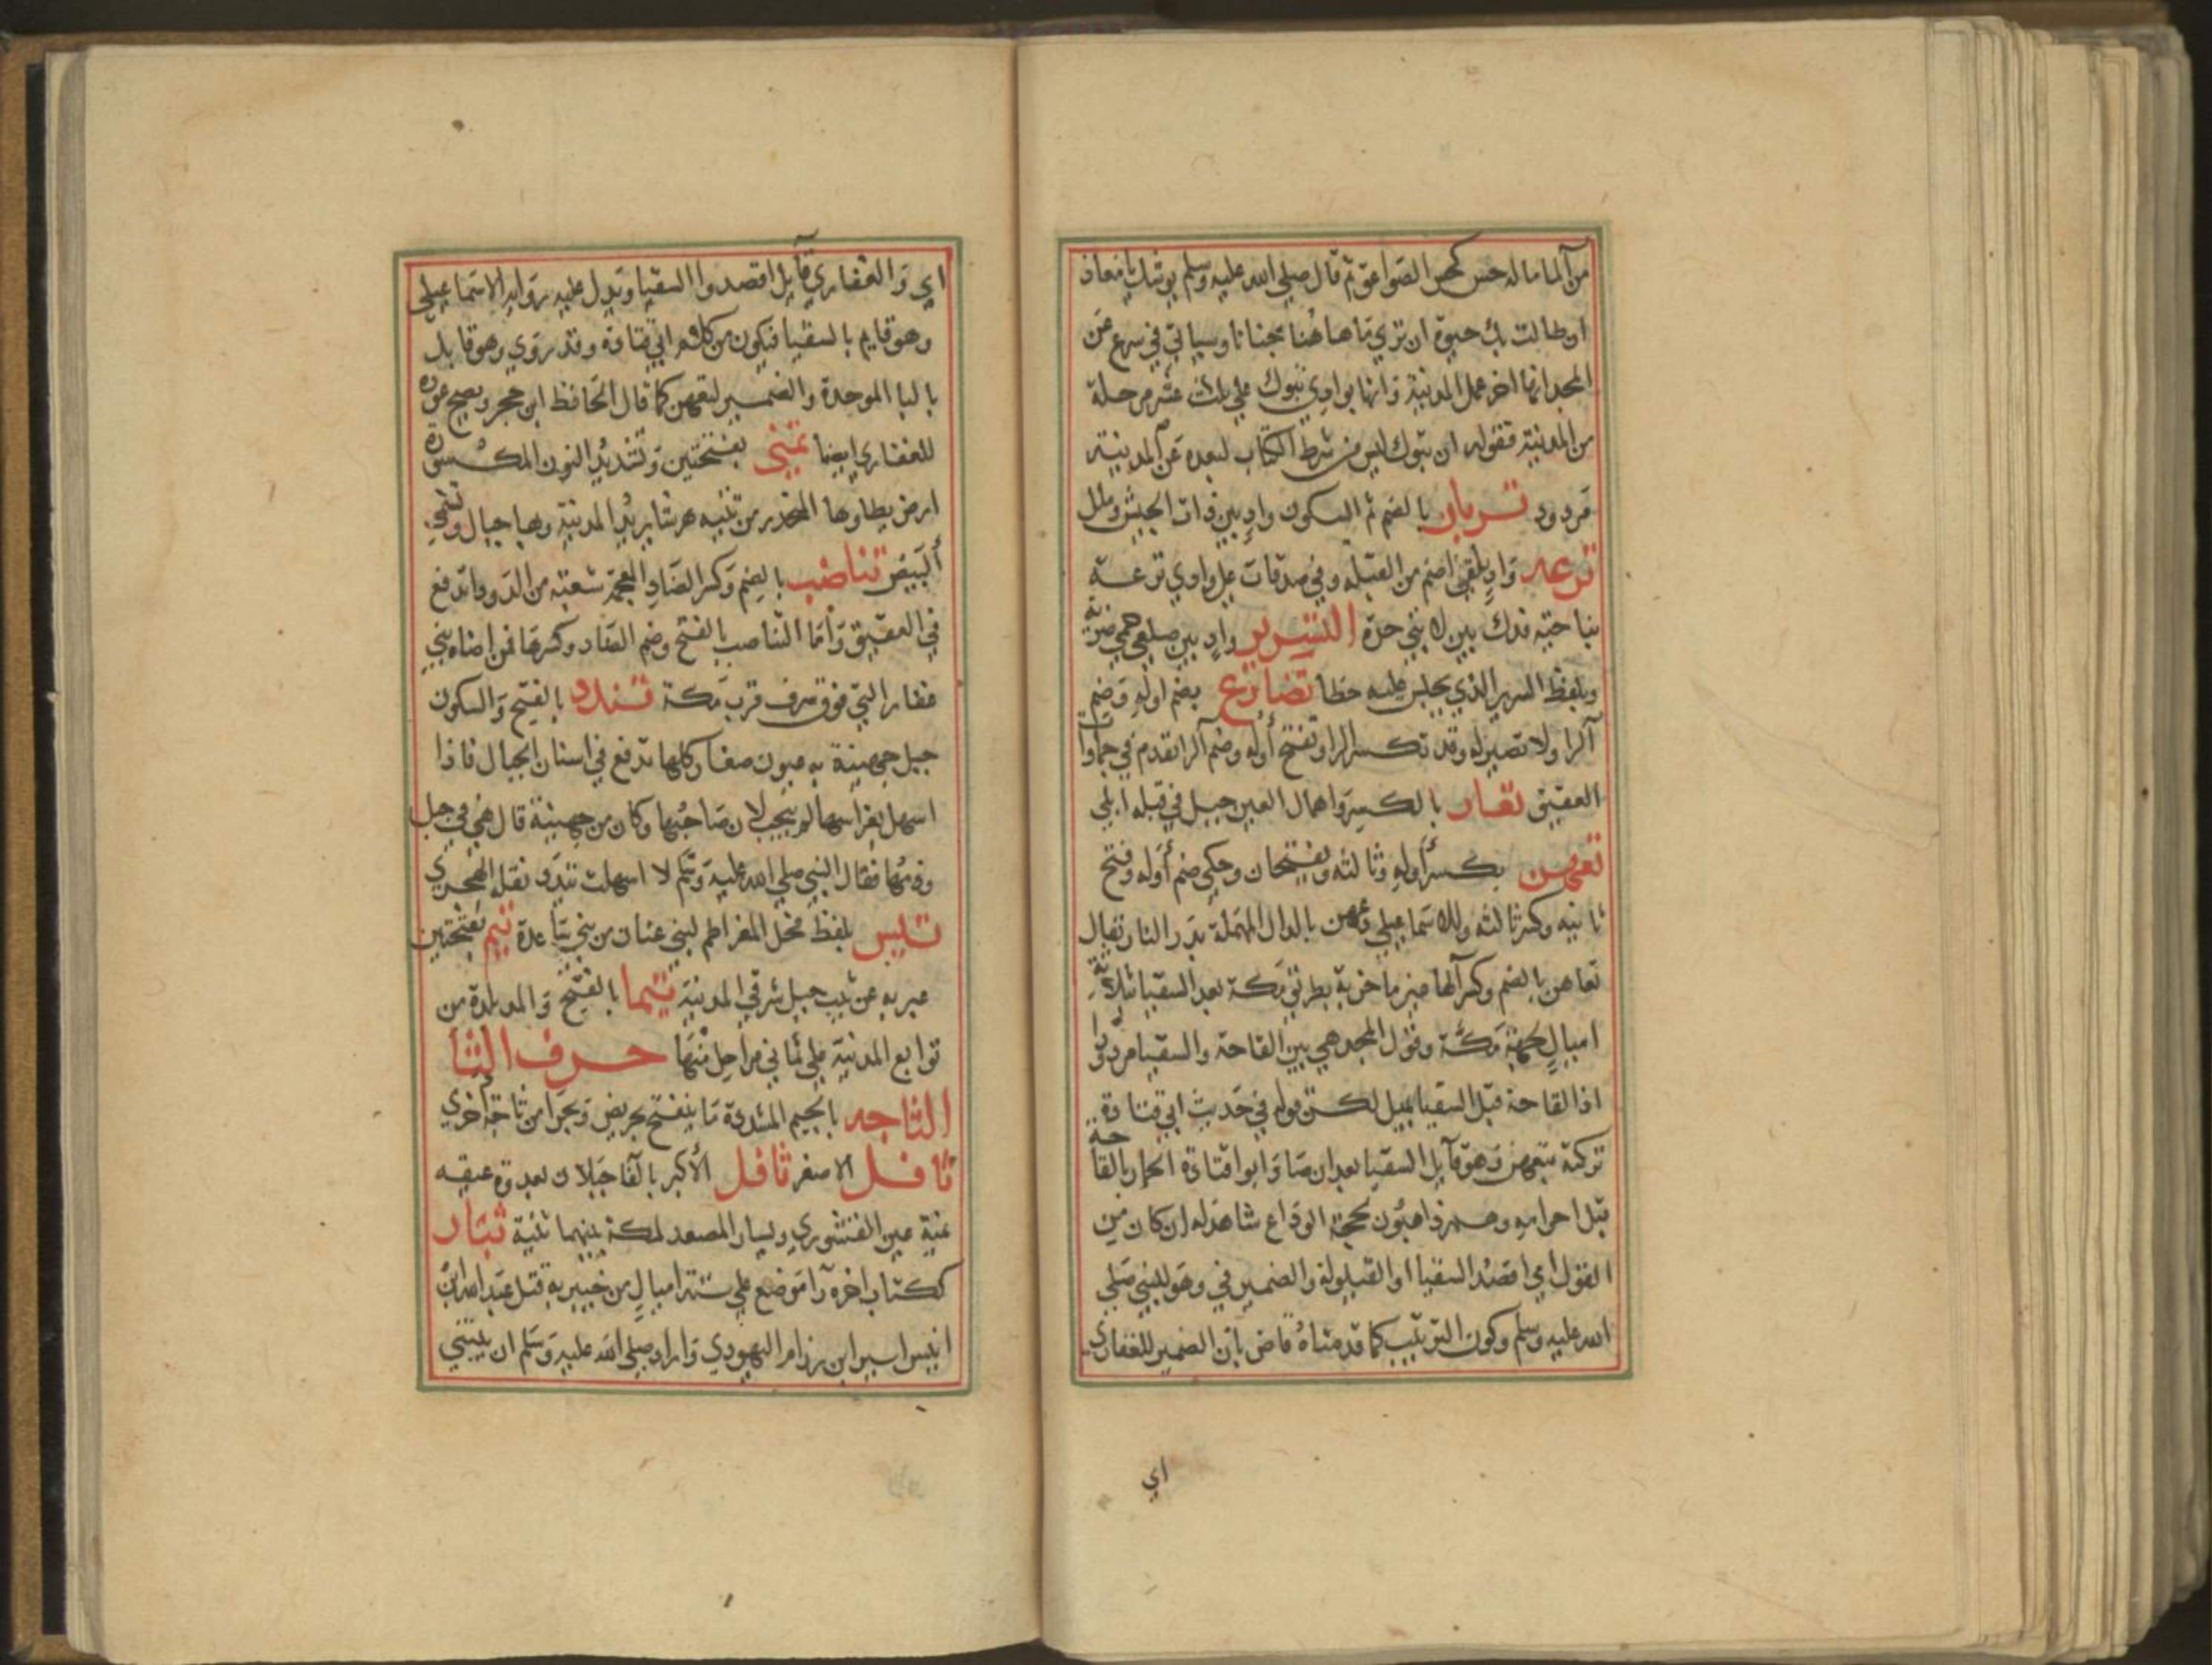 من الما ماله حس كحس الصواعق ثم قال صلى الله عليه وسلم يوشك يا معاذ
ان طالت بك حيوة ان تري ما هاهنا جنانا وسياتي في سرع عن
المجد انها اخر عمل المدينة وانها بوادي تبوك علي ثلث عشر مرحلة
من المدينة فقوله ان تبوك ليس من شرط الكتاب لبعده عن المدينة
مردود تربان بالضم ثم السكون واد بين ذات الجيش وملل
ترعه واد يلقي اضم من القبلة وفي صدقات علي وادي ترعة
بناحية فدك بين لابتي حرة التسرير واد بين ضلعي حمي ضرية
وبلفظ السرير الذي يجلس عليه خطا تضارع بضم اوله وضم
الرا ولا نصير له وقد تكسر الرا وتفتح أوله وضم الرا تقدم في جماوات
العقيق تعار بالكسر واهمال العين جبل في قبله ابلي
تعهن بكسر أوله وثالثه وبفتحان وحكي ضم أوله وفتح
ثانيه وكسر ثالثه وللاسماعيلي دعهن بالدال المهملة بدر التا ويقال
تعاهن بالضم وكسر الها عين ما خربة بطريق مكة بعد السقيا بثلاثة
اميال لجهة مكة وقول المجد هي بين القاحة والسقيا مردود
اذ القاحة قبل السقيا بميل لكن قوله في حديث ابي قتادة
تركته بتعهن وهو قايل السقيا بعد ان صاد ابو اقتادة الحمار بالقاحة
قبل احرامه وهم ذاهبون لحجة الوداع شاهد له ان كان من
القول اي اقصد السقيا او القيلولة والضمير في وهو للنبي صلي
الله عليه وسلم وكون الترتيب كما قدمناه قاض بان الضمير للغفاري
اي
اي والغفاري قايل اقصدوا السقيا ويدل عليه رواية الاسماعيلي
وهو قايم بالسقيا فيكون من كلام ابي قتادة وقد روي وهو قابل
بالبا الموحدة والضمير لتعهن كما قال الحافظ ابن حجر ويصح عوده
للغفاري ايضا تمني بفتحتين وتشديد النون المكسورة
ارض يطاوها المنحدر من ثنيه هرشا يريد المدينة وبها جبال وتسمي
البيض تناضب بالضم وكسر الضاد المعجمة شعبة من الدوداتدفع
في العقيق واما التناضب بالفتح وضم الضاد وكسرها فمن اضاه بني
غفار التي فوق سرف قرب مكة تندد بالفتح والسكون
جبل جهينة به عيون صغار كلها تدفع في اسنان الجبال فاذا
اسهل بغراسها لم ينجب لان صاحبها وكان من جهينة قال هي في جبل
وذمها فقال النبي صلي الله عليه وسلم لا اسهلت تندد نقله الهجري
تليس بلفظ نحل المغراطم لبني عنان من بني ساعدة تيم بفتحتين
عبر به عن تيب جبل شرقي المدينة تيما بالفتح والمد بلدة من
توابع المدينة علي ثماني مراحل منها حرف الثا
الثاجه بالجيم المشددة ما ينفتح بحريض وبحرا من ثاجة اخري
ثافل الاصغر ثافل الأكبر بالفا جبلان بعدوة غيقه
عنية عين القشوري ويسار المصعد لمكة بينهما ثنية ثبار
ككتاب اخره را موضع علي ستة اميال من خيبر به قتل عبد الله ابن
انيس اسير ابن رزام اليهودي واراد صلي الله عليه وسلم ان يبتني